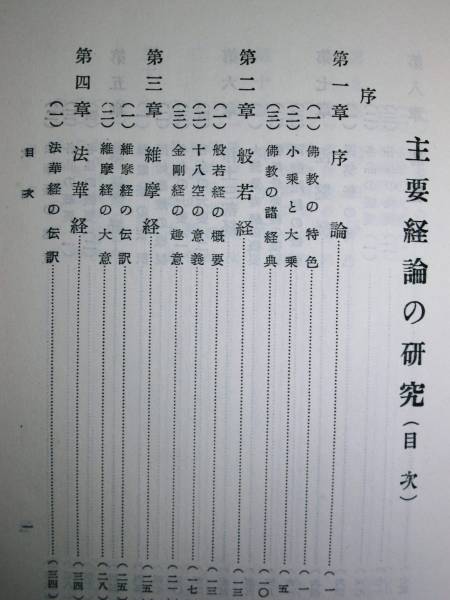 主要経論の研究(目次)
序
第一章 序論……(一
(一) 佛教の特色……(一
(二) 小乗と大乗……(五
(三) 佛教の諸経典……(一〇
第二章 般若経……(一三
(一) 般若経の概要……(一三
(二) 十八空の意義……(一七
(三) 金剛経の趣意……(二一
第三章 維摩経……(二五
(一) 維摩経の伝訳……(二五
(二) 維摩経の大意……(二八
第四章 法華経……(三四
(一) 法華経の伝訳……(三四
目次 一